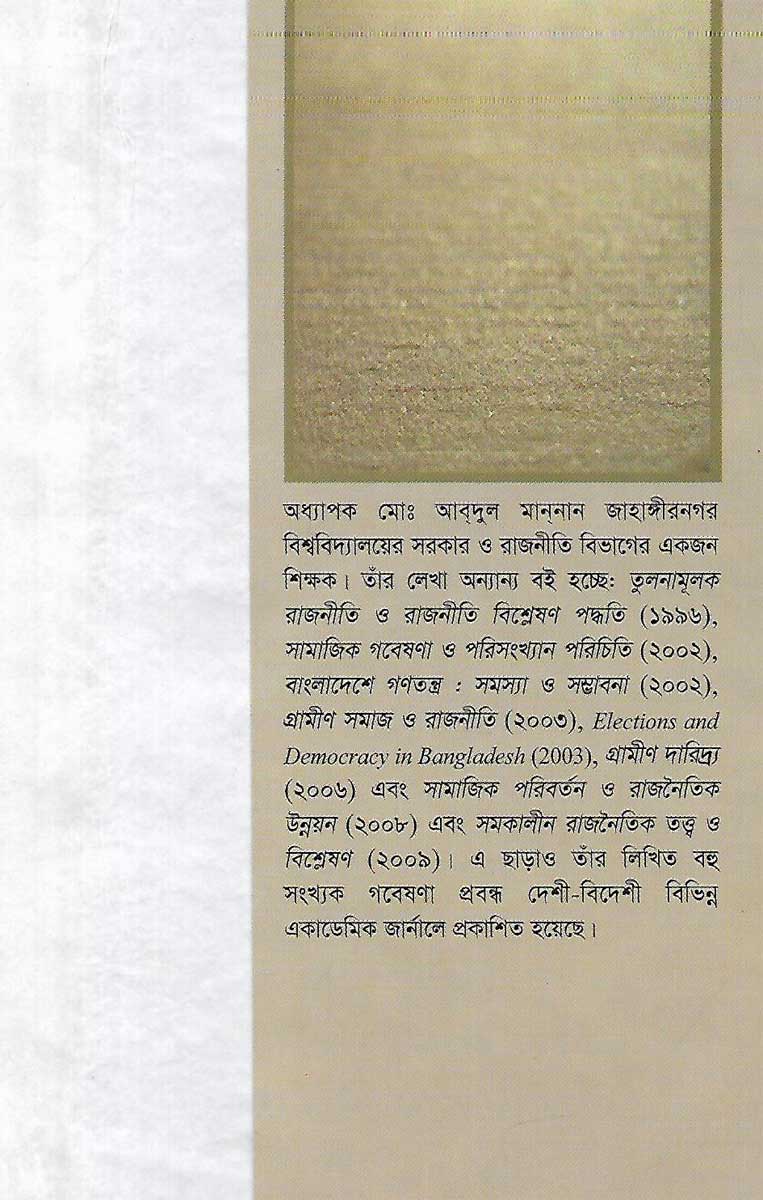 অধ্যাপক মোঃ আব্‌দুল মান্‌নান জাহাঙ্গীরনগর
বিশ্ববিদ্যালয়ের সরকার ও রাজনীতি বিভাগের একজন
শিক্ষক। তাঁর লেখা অন্যান্য বই হচ্ছে: তুলনামূলক
রাজনীতি ও রাজনীতি বিশ্লেষণ পদ্ধতি (১৯৯৬),
সামাজিক গবেষণা ও পরিসংখ্যান পরিচিতি (২০০২),
বাংলাদেশে গণতন্ত্র : সমস্যা ও সম্ভাবনা (২০০২),
গ্রামীণ সমাজ ও রাজনীতি (২০০৩), Elections and
Democracy in Bangladesh (2003), গ্রামীণ দারিদ্র্য
(২০০৬) এবং সামাজিক পরিবর্তন ও রাজনৈতিক
উন্নয়ন (২০০৮) এবং সমকালীন রাজনৈতিক তত্ত্ব ও
বিশ্লেষণ (২০০৯)। এ ছাড়াও তাঁর লিখিত বহু
সংখ্যক গবেষণা প্রবন্ধ দেশী-বিদেশী বিভিন্ন
একাডেমিক জার্নালে প্রকাশিত হয়েছে।